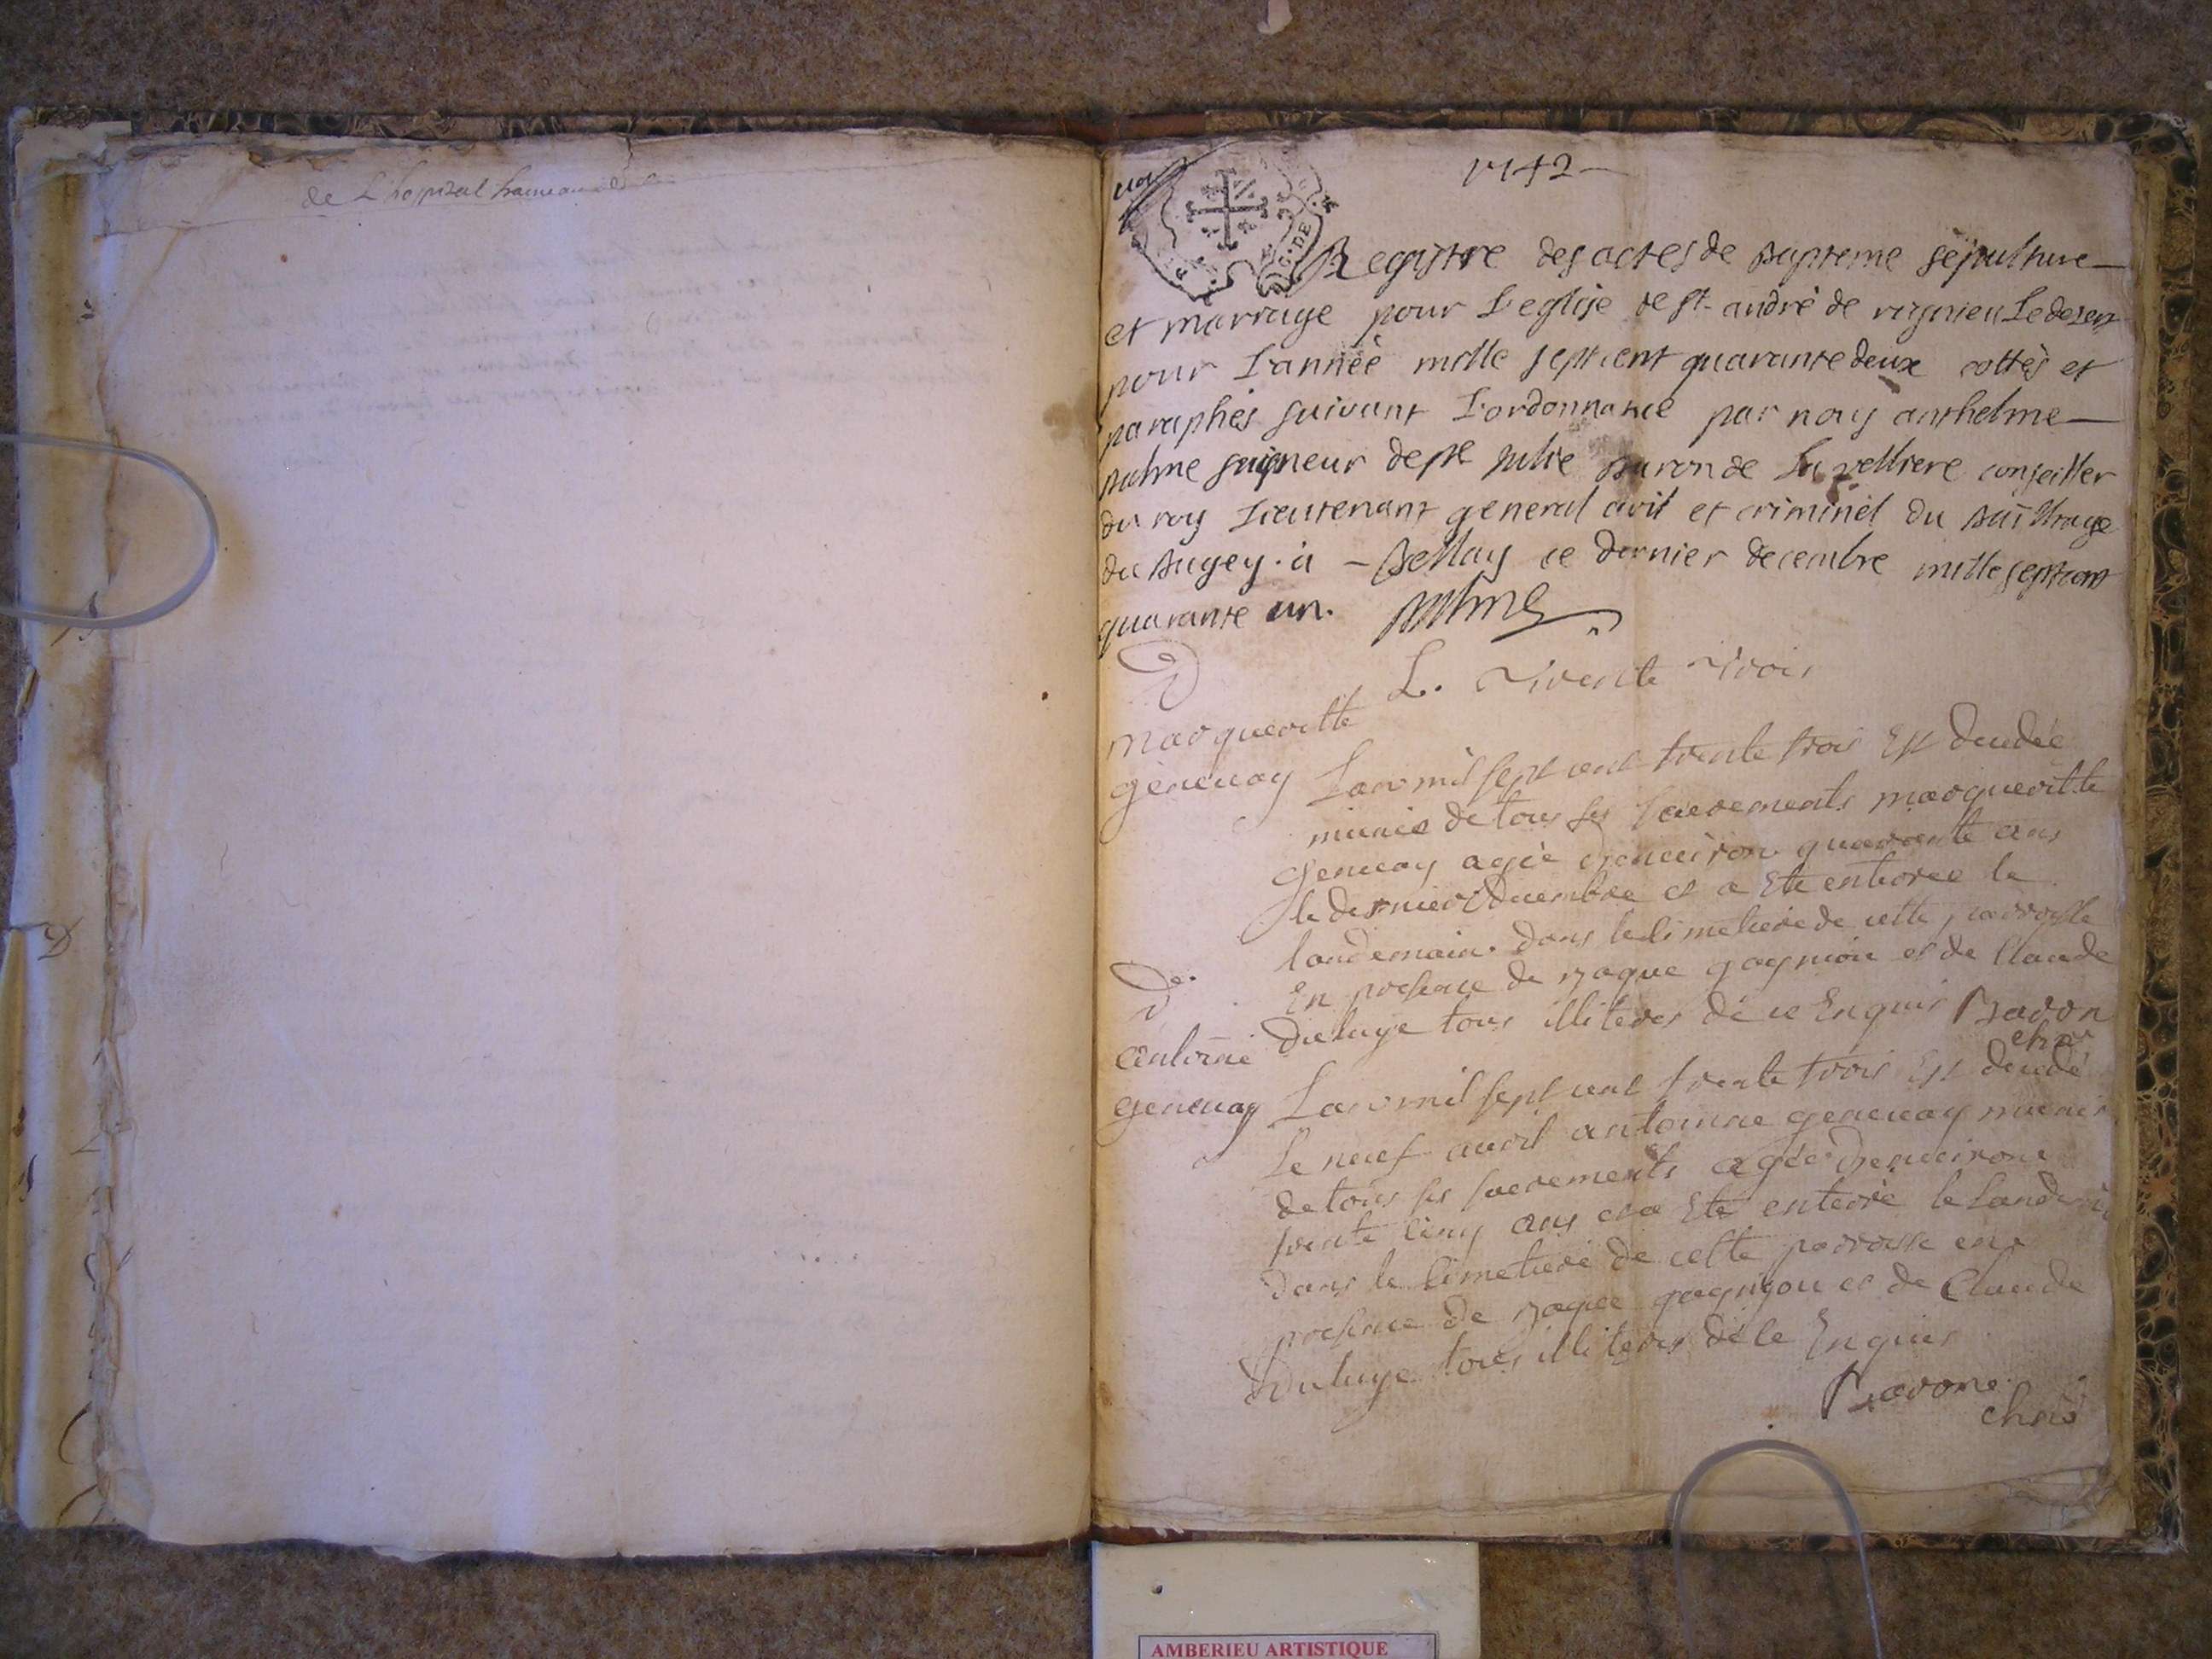 de L'hopital
1742
Registre des actes de bapteme sepulture
et marriage pour L'eglise de st andré de rignieu Le desert
pour L'année mille septcent quarante deux cottés et
paraphés suivant L'ordonnance par nous anthelme
balme seigneur de ste Julie baron de La velliere conseiller
du roy Lieutenant general civil et criminel du bailliage
du bugey à Bellay ce dernier decembre mille septcent
quarante un. Balme
L. trente trois
D
margueritte
genevay
Lan mil sept cent trente trois Est decedée
munie de tous ses sacrements margueritte
Genevay agée denviron quarante ans
le dernier decembre et a Eté enterree le
landemain dans le Cimetiere de cette parroisse
En presence de Jaque gagnion et de Claude
tous illiteres de ce Enquis Baron
D
Antoine
genevay
Lan mil sept cent trente trois Est decedé
Le neuf avril antoinne genevay munis
de tous ses sacrements agée denviron
trente cinq ans et a Eté enterré le
dans le Cimetiere de cette parroisse en
presence de Jaque gagnyon et de Claude
tous illiteres de ce Enquis
Barone
G. DE
AMBERIEU ARTISTIQUE